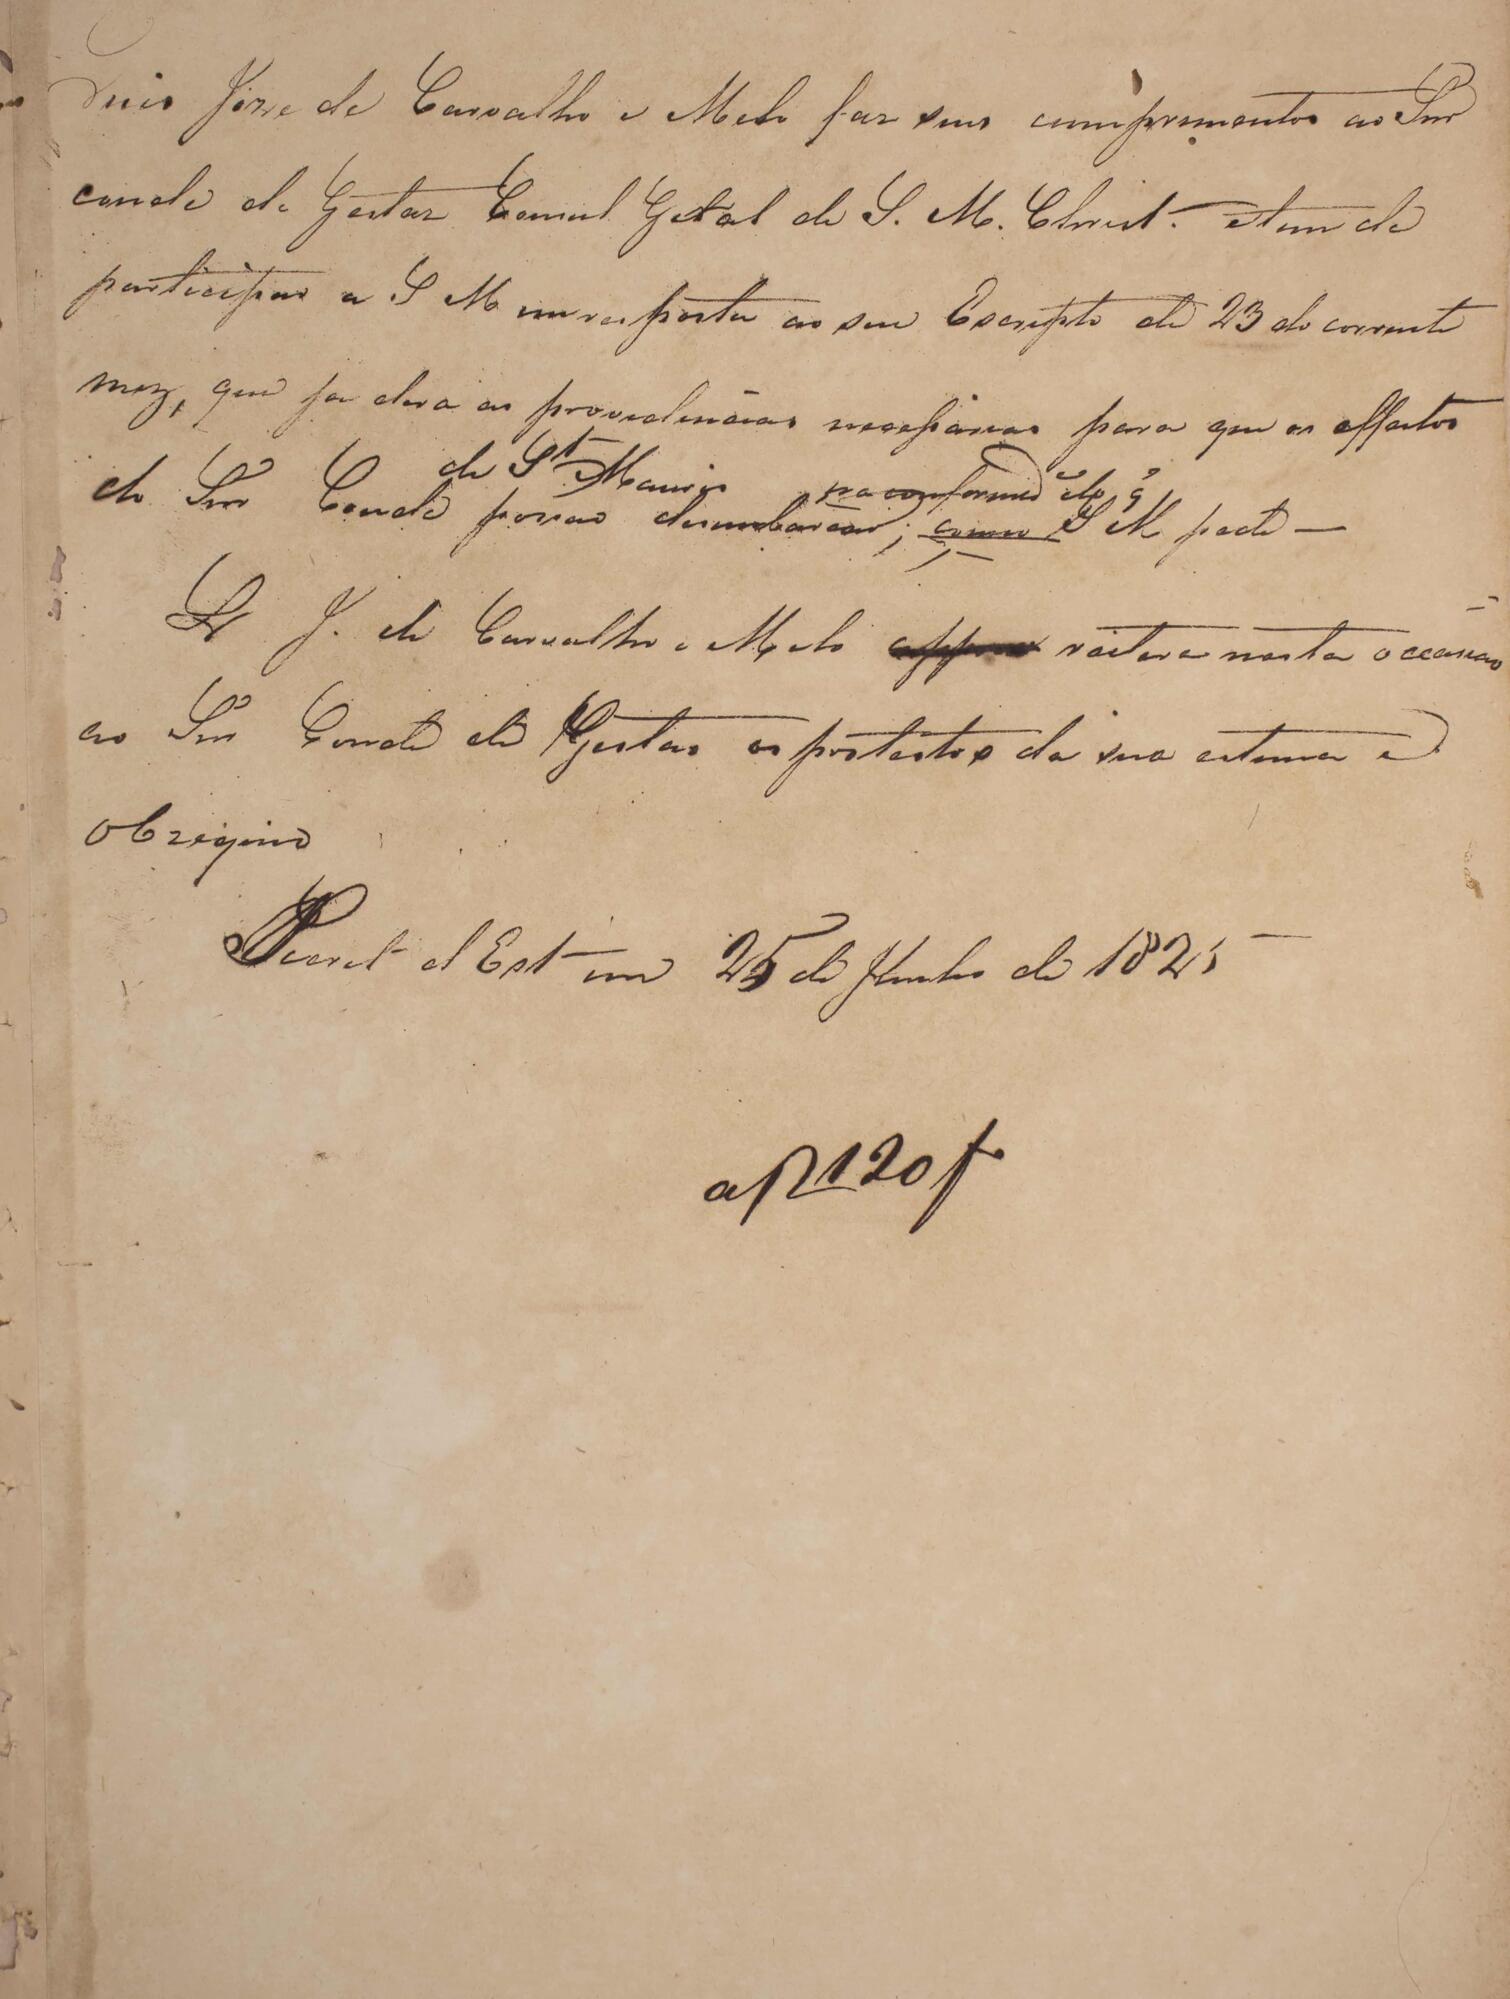 Luis Joze de Carvalho e Mello faz seus cumprimentos ao Snr
Conde de Gestas Consul Geral de S. M. Christ. e tem de
participar a S M em resposta ao seu Escripto de 23 do corrente
mez, que ja dera as providencias necessarias para que os effeitos
de St Mauris na conformide do q̃
do Snr Conde possão desembarcar; como S M pede —
L J. de Carvalho e Mello reitera nesta occasião
ao Snr Conde de Gestas os protestos da sua estima e
obzequio
Secret d Est em 25 de Junho de 1825
a f 120 f